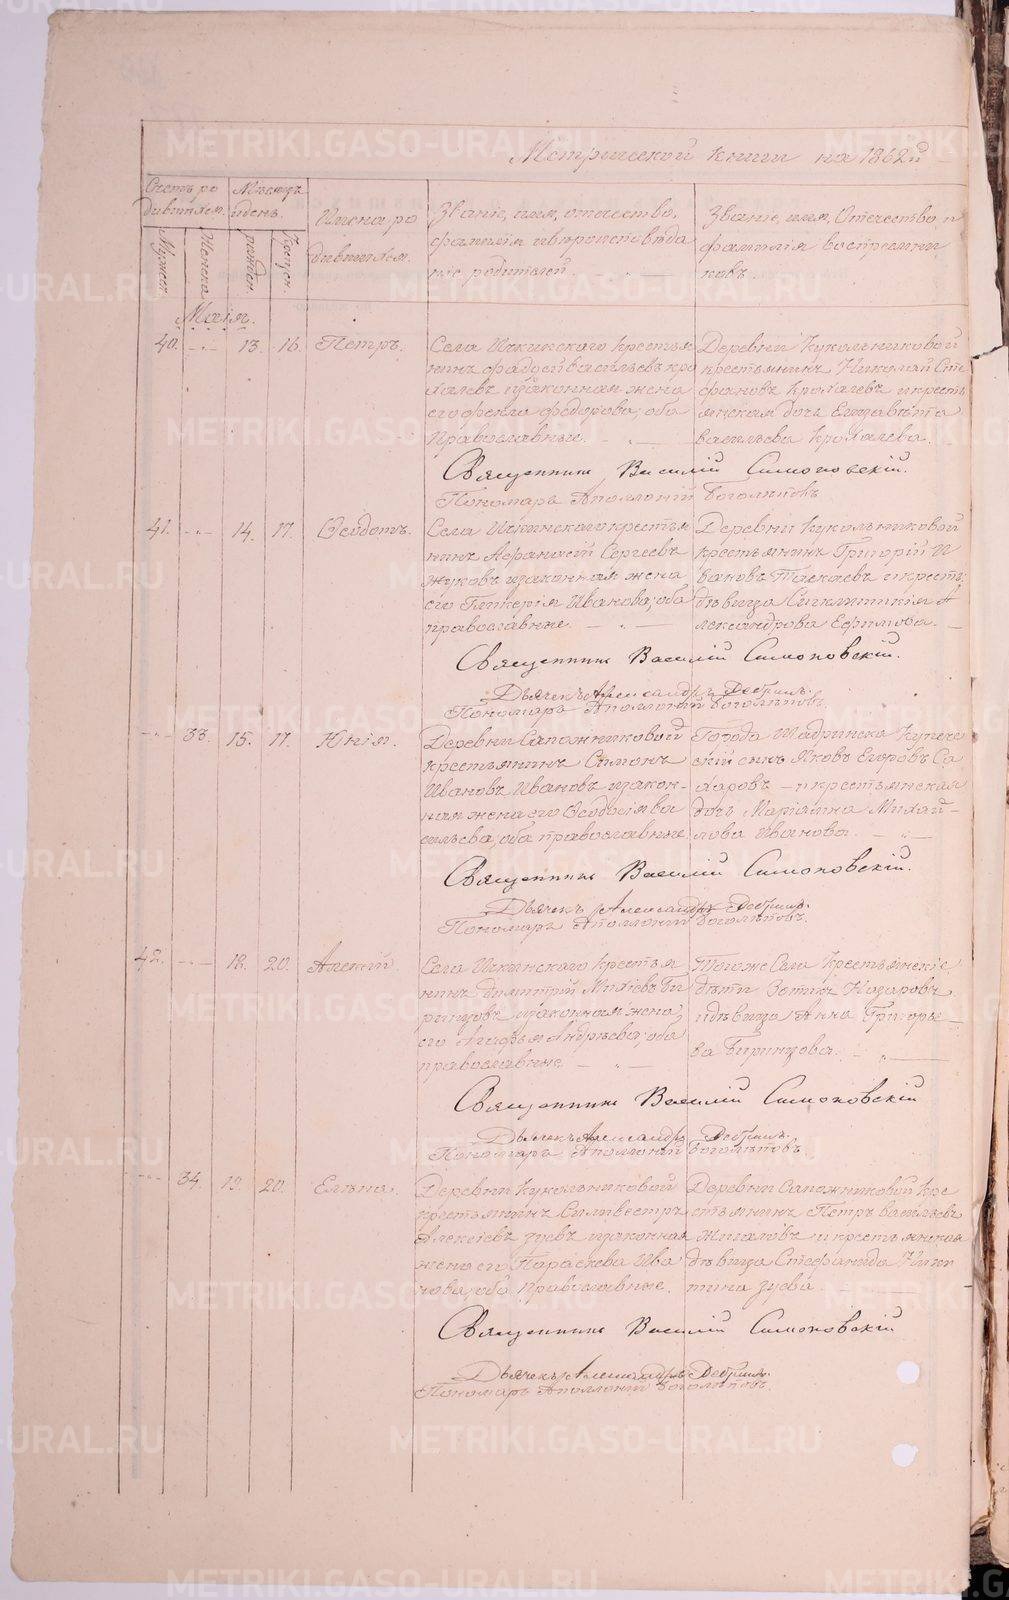 Метрической книги на 1862й
Счетъ ро
дившихся.
Мѣсяцъ
и день.
Имена ро
дившихся.
Званіе, имя, отчество,
фамилія и вѣроисповѣда
ніе родителей.
Званіе, имя, Отечество и
фамилія воспріемни
ковъ.
Мужск.
Женска
рожден.
Крещен.
Маія.
40. 13. 16. Петръ.
Села Ичкинскаго крестья
нинъ Фадѣй Васильевъ Кро
халевъ и законная жена
его Фекла Федорова; оба
Православные.
Деревни Кукольниковой
крестьянинъ Николай Сте
фановъ Крохалевъ и кресть
янская дочь Елизавѣта
Васильева Крохалева.
Священникъ Василій Симоновскій.
Пономарь Аполлоній Боголѣповъ.
41. 14. 17. Ѳеодотъ.
Села Ичкинскаго крестья
нинъ Афанасій Сергеевъ
Жуковъ и законная жена
его Гликерія Иванова; оба
православные.
Деревни Кукольниковой
крестьянинъ Григорій И
вановъ Таскаевъ и крест:
дѣвица Сигклитикія А
лександрова Ефимова.
Священникъ Василій Симоновскій.
Дьячекъ Александръ Дебринъ.
Пономарь Аполлоній Боголѣповъ.
33. 15. 17. Юнія.
Деревни Сапожниковой
крестьянинъ Симонъ
Ивановъ Ивановъ и закон-
ная жена его Ѳеодосія Ва
сильева; оба православные
Города Шадринска Купече
скій сынъ Яковъ Егоровъ Са
харовъ - и крестьянская
дочь Маріамна Михай-
лова Иванова.
Священникъ Василій Симоновскій.
Дьячекъ Александръ Дебринъ.
Пономарь Аполлоній Боголѣповъ.
42. 18. 20. Алексій.
Села Ичкинскаго крестья
нинъ Димитрій Михѣевъ Би
ринцовъ и законная жена
его Агафья Андреева; оба
православные
Того же Села Крестьянскіе
дѣти Зотикъ Назаровъ
и дѣвица Анна Григорье
ва Биринцова.
Священникъ Василій Симоновскій
Дьячекъ Александръ Дебринъ.
Пономарь Аполлоній Боголѣповъ.
34. 19. 20. Елена.
Деревни Кукольниковой
крестьянинъ Силивестръ
Алексіевъ Зуевъ и законная
жена его Параскева Ива
нова; оба Православные.
Деревни Сапожниковой Кре
стьянинъ Петръ Васильевъ
Жигаловъ и крестьянская
дѣвица Стефанида Ники
тина Зуева
Священникъ Василій Симоновскій
Дьячекъ Александръ Дебринъ.
Пономарь Аполлоній Боголѣповъ.